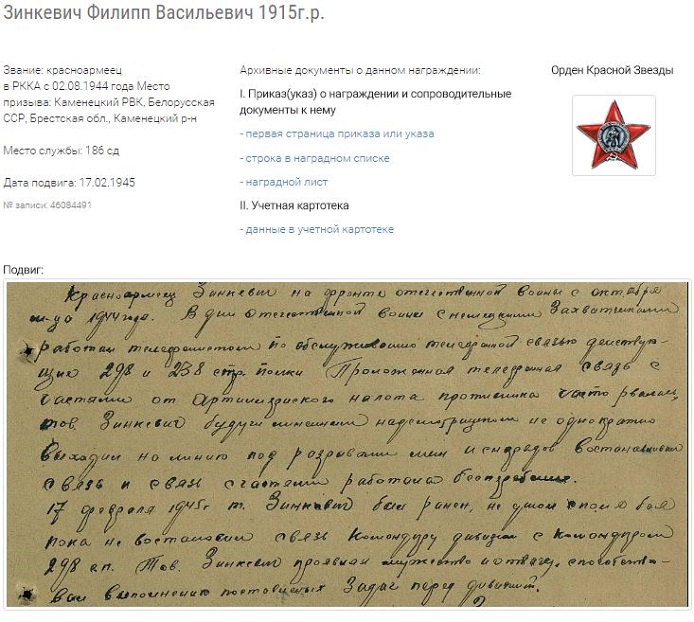 Зинкевич Филипп Васильевич 1915г.р.
Звание: красноармеец
в РККА с 02.08.1944 года Место
призыва: Каменецкий РВК, Белорусская
ССР, Брестская обл., Каменецкий р-н
Место службы: 186 сд
Дата подвига: 17.02.1945
№ записи: 46084491
Архивные документы о данном награждении:
I. Приказ(указ) о награждении и сопроводительные
документы к нему
- первая страница приказа или указа
- строка в наградном списке
- наградной лист
II. Учетная картотека
- данные в учетной картотеке
Орден Красной Звезды
Подвиг:
Красноармеец Зинкевич на фронте отечественной войны с октября
м-ца 1944 года. В дни отечественной войны с немецкими захватчиками
работая телефонистом по обслуживанию телефонной связью действую-
щих 298 и 238 стр. полки Проложенная телефонная связь с
частями от Артиллерийского налота противника часто рвалась,
тов. Зинкевич будучи линейным надсмотрщиком не однократно
выходил на линию под разрывами мин и снарядов востанавливал
связь и связь с частями работала бесперебойно.
17 февраля 1945г т. Зинкевич был ранен, не ушол с поля боя
пока не востановил связь Командиру дивизии с Командиром
298 сп. Тов. Зинкевич проявил мужество и отвагу, способство-
вал выполнению поставленых Задач перед дивизией.